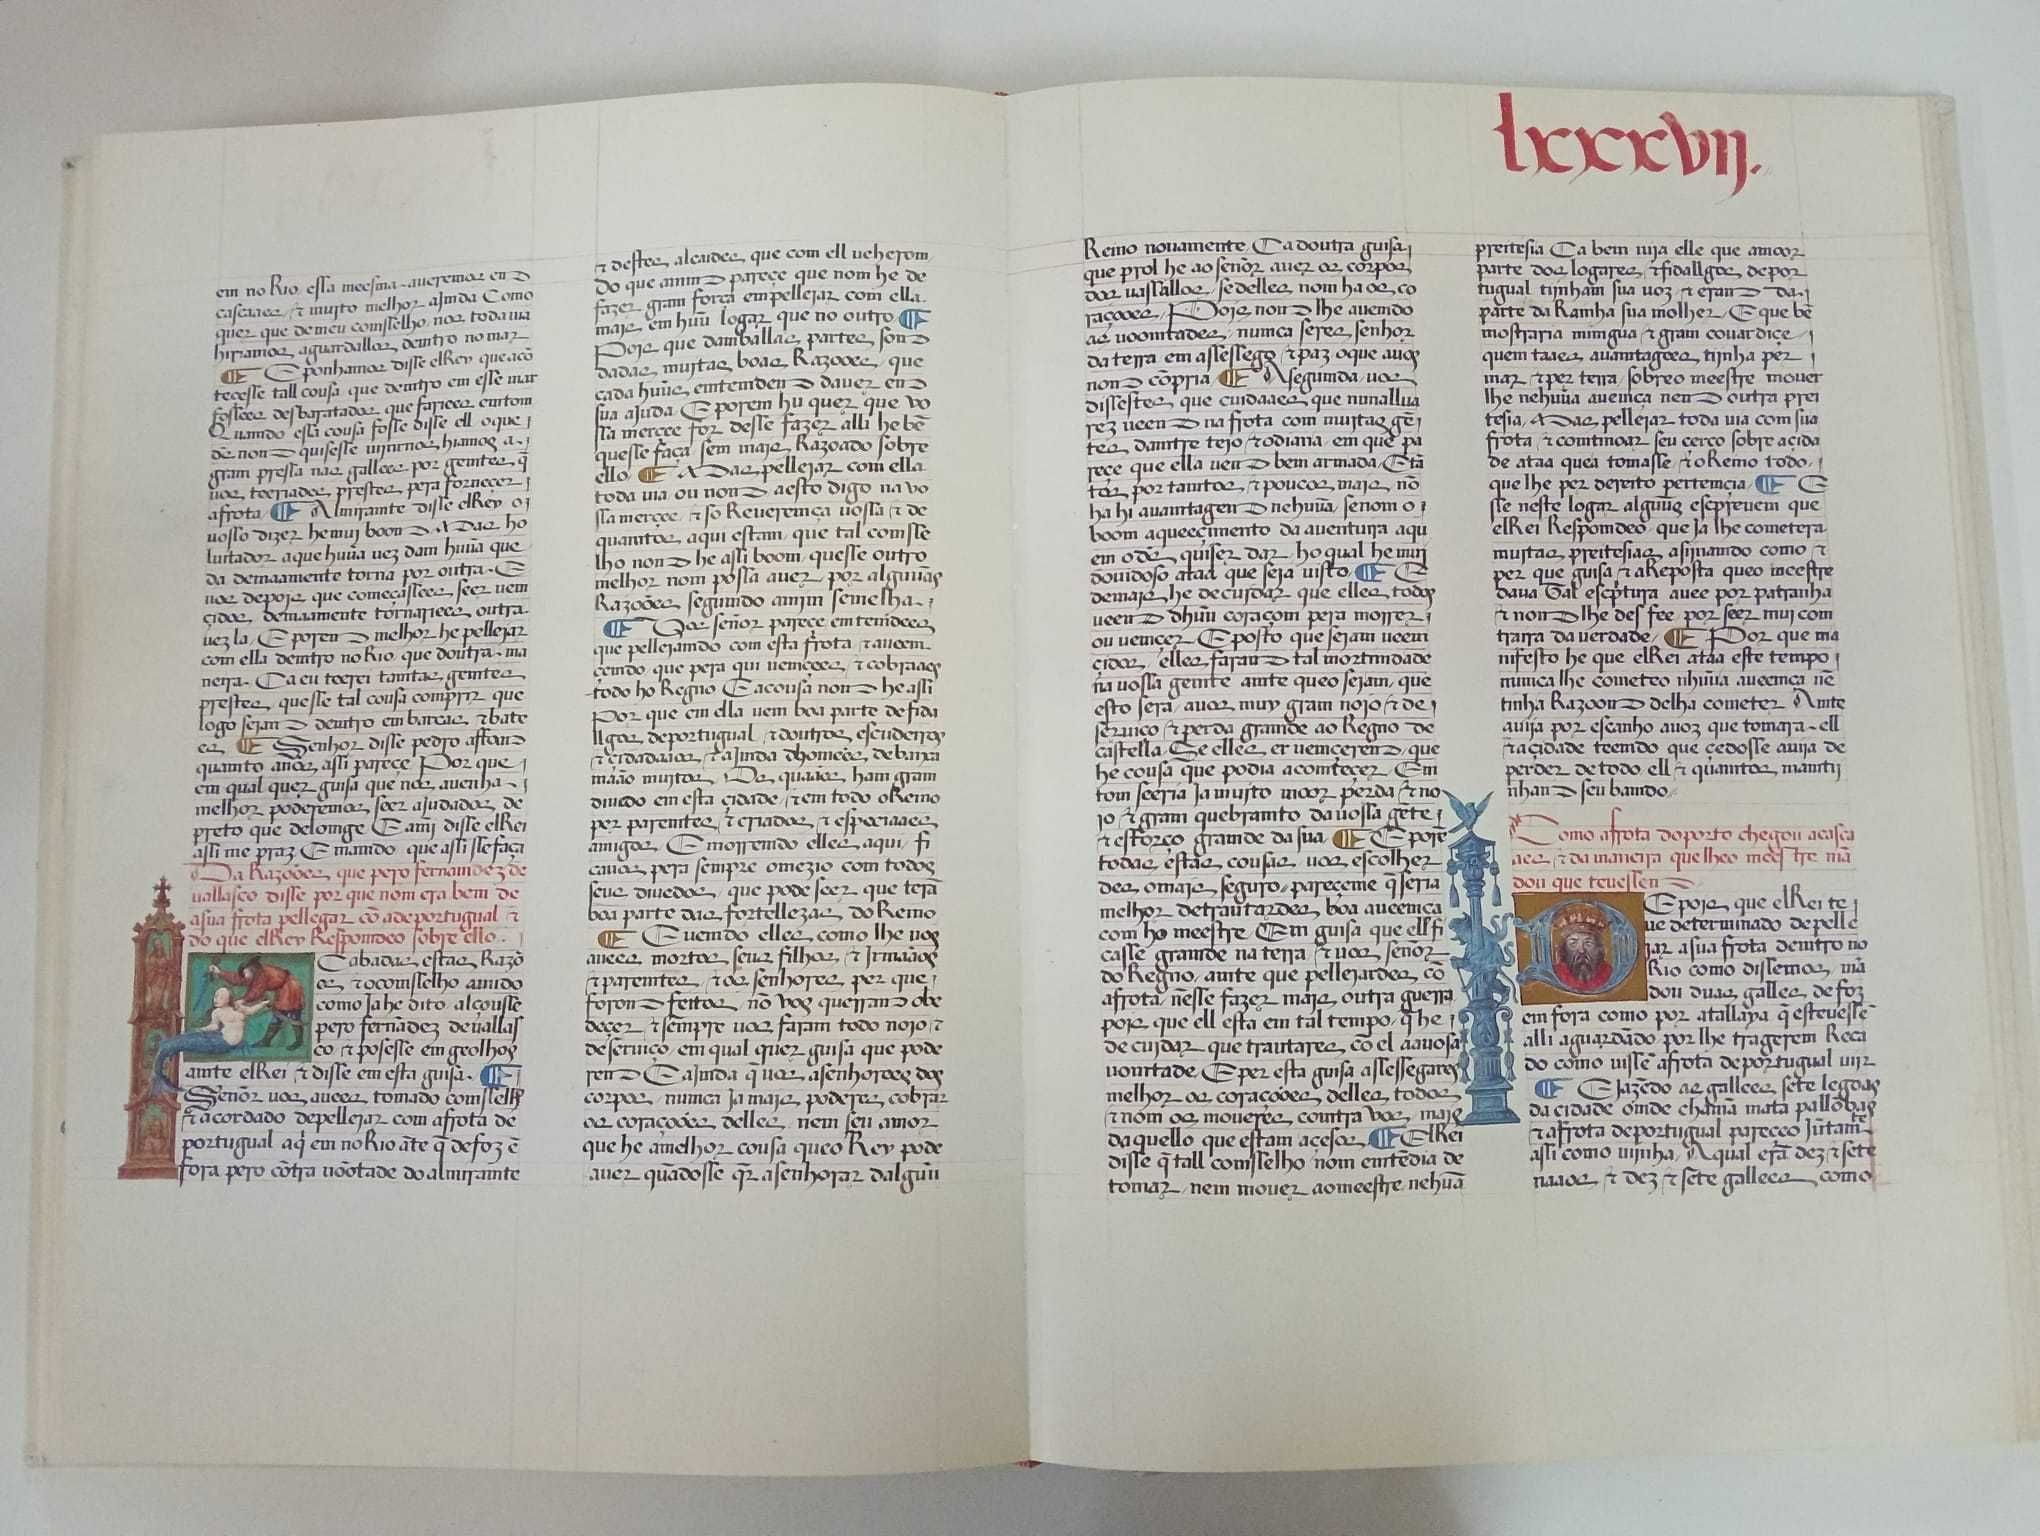 em no Rio, essa meesma aueremos en D
cascaaes, & muito melhor ajnda Como
quer que de meu comsselho, nos toda uia
hiriamos aguardallos dentro no mar
¶ Eponhamos disse elRey que acõ
tecesse tall cousa que demtro em esse mar
fossees desbaratados que fariees emtom
Quamdo essa cousa fosse disse ell oque
deos non D quisesse uijrnos hiamos a
gram pressa nas gallees por gemtes q̃
uos teeriades prestes pera fornecer
a frota. ¶ Almirante disse elRey o
uosso dizer he mui boon D. Mas ho
luitador a que huũa uez dam huũa que
da demaamente torna por outra. E
uos depois que começassees seer uem
çidos, demaamente tornariees outra
uez la. E poren D melhor he pellejar
com ella demtro no Rio, que doutra ma
neira. Ca eu teerei tamtas gemtes
prestes, quesse tal cousa comprir que
logo sejan D demtro em barcas & bate
es ¶ Senhor disse pedro affon D
quamto a nos assi pareçe Por que
em qual quer guisa que nos auenha
melhor poderemos seer ajudados de
preto que delonge E a mj disse elRei
assi me praz. E mamdo que assi sse faça
Da Razõoes que pero fernamdez de
uallasco disse por que nom era bem de
a sua frota pellegar cõ a de portugal &
do que elRey Respomdeo sobre ello.
Cabadas estas Razõ
es & o comsselho auudo
como ja he dito alçousse
pero fernãdez de uallas
co, & posesse em geolhos
amte elRei & disse em esta guisa. ¶
Señor uos auees tomado comsselho
& acordado de pellejar com a frota de
portugual aqj em no Rio ãte q̃ de foz ẽ
fora pero cõtra uõotade do almirante
& destes alcaides que com ell ueherom
do que amim D pareçe que nom he de
fazer gram força em pellejar com ella
mais em huũ logar que no outro ¶
Pois que dambàllas partes son D
dadas muitas boas Razõoes, que
cada huũs emtemden D dauer en D
sua ajuda E porem hu quer que uo
ssa merçee for desse fazer alli he bẽ
quesse faça sem mais Razoado sobre
ello. ¶ Mas pellejar com ella
toda uia, ou non D a esto digo na uo
ssa merçee, & so Reueremça uossa & de
quamtos aqui estam, que tal comsse
lho non D he assi boom, quesse outro
melhor nom possa auer, por alguũas
Razõoes segumdo amjm semelha.
¶ Uos señor pareçe emtemdees
que pellejamdo com esta frota & auem
çemdo que pera qui uemçees, & cobraaes
todo ho Regno E a cousa non D he assi
Por que em ella uem boa parte de fida
llgos de portugual, & doutros escudeiros
& çidadaãos, & ajmda dhomẽes de baixa
maão muitos. Os quaães ham gram
diuido em esta çidade, & em todo o Reino
per paremtes, & criados & espeçiaaes
amigos. E morremdo elles aqui, fi
caues pera sempre omezio com todos
seus diuedos, que pode seer que terã
boa parte das fortellezas do Reino
¶ E uemdo elles como lhe uos
auees mortos seus filhos, & Irmaãos
& paremtes, & os senhores per que
foron D feitos, nõ uos querran D obe
deçer & sempre uos faram todo nojo &
deseruiço, em qual quer guisa que pode
ren D E ajnda q̃ uos asenhorees dos
corpos, nunca ja mais poderes cobrar
os coraçõoes delles, nem seu amor
que he a melhor cousa que o Rey pode
auer, quãdosse q̃r asenhorar dalguũ
lxxxvij.
Reino nouamente. Ca doutra guisa
que prol he ao señor auer os corpos
dos uassallos, se delles nom ha os co
raçõoes, Pois non D lhe auemdo
as uoomtades, nunca seres senhor
da terra em assessego & paz o que a uos
non D cõpria. ¶ A segumda, uos
dissestes que cuidaaes que nunalluá
rez ueen D na frota com muitas gẽ
tes dantre tejo & odiana, em que pa
reçe que ella uen D bem armada. E tã
tos por tamtos & poucos mais nõ
ha hi auamtagen D nehuũa, senom o
boom aqueeçimento da auentura aqu
em o deos quiser dar, ho qual he muj
douidoso ataa que seja uisto. ¶ E
demais he de cuidar que elles todos
ueen D dhuũ coraçom pera morrer
ou uemçer. E posto que sejam ueem
çidos, elles faran D tal mortimdade
na uossa gemte amte que o sejam, que
esto sera a uos muy gram nojo & de
seruiço & perda grande ao Regno de
castella. Se elles er uemçeren D, que
he cousa que podia acomteçer. Em
tom seeria ja muito moor perda & no
jo & gram quebramto da uossa gẽte
& esforço grande da sua. ¶ E porẽ
todas estas cousas, uos escolher
des o mais seguro, pareçeme q̃ seria
melhor de trautardes boa aueemça
com ho meestre. Em guisa que ell fi
casse grande na terra & uos señor
do Regno, amte que pellejardes cõ
a frota, nẽsse fazer mais outra guerra
pois que ell esta em tal tempo, q̃ he
de cuidar que trautares cõ el a a uossa
uoomtade. E per esta guisa assessegares
melhor os coraçõoes delles todos
& nom os moueres comtra uos mais
daquello que estam acesos. ¶ ElRei
disse q̃ tall comsselho nom emtẽdia de
tomar, nem mouer ao meestre nehuã
preitesia Ca bem uija elle que a moor
parte dos logares & fidallgos de por
tugual tijnham sua uoz & eran D da
parte da Rainha sua molher. E que bẽ
mostraria mimgua & gram couardiçe
quem taaes auamtagẽes tijnha per
mar & per terra, sobre o meestre mouer
lhe nehuũa aueemça nen D outra prei
tesia. Mas pellejar toda uia com sua
frota, & comtinoar seu çerco sobre a çida
de ataa que a tomasse, & o Reino todo
que lhe per dereito pertemçia. ¶ E
sse neste logar alguũs espreuem que
elRei Respomdeo, que ja lhe cometera
muitas preitesias, asijnamdo como &
per que guisa, & a Reposta que o meestre
daua Tal escptura auee por patranha
& non D lhe des fee por seer muj com
traira da uerdade. ¶ Por que ma
nifesto he que elRei ataa este tempo
nunca lhe cometeo nhuũa aueemça nẽ
tinha Razoon D delha cometer. Ante
auija por escarnho a uoz que tomara ell
& a çidade teemdo que çedosse auija de
perder de todo, ell & quamtos mamtij
nhan D seu bamdo.
Como a frota do porto chegou a casca
aes, & da maneira que lhe o meestre mã
dou que teuessen D
Epois que elRei te
ue determinado de pelle
jar a sua frota demtro no
Rio como dissemos, mã
dou duas gallees de foz
em fora como por atallaya q̃ esteuessẽ
alli aguardãdo por lhe tragerem Reca
do como uissẽ a frota de portugual uijr
¶ E jazẽdo as gallees sete legoas
da çidade omde chamã mata pallõbas
& a frota de portugual pareceo jũtam
assi como uijnha. A qual erã dez & sete
naaos & dez & sete gallees, como